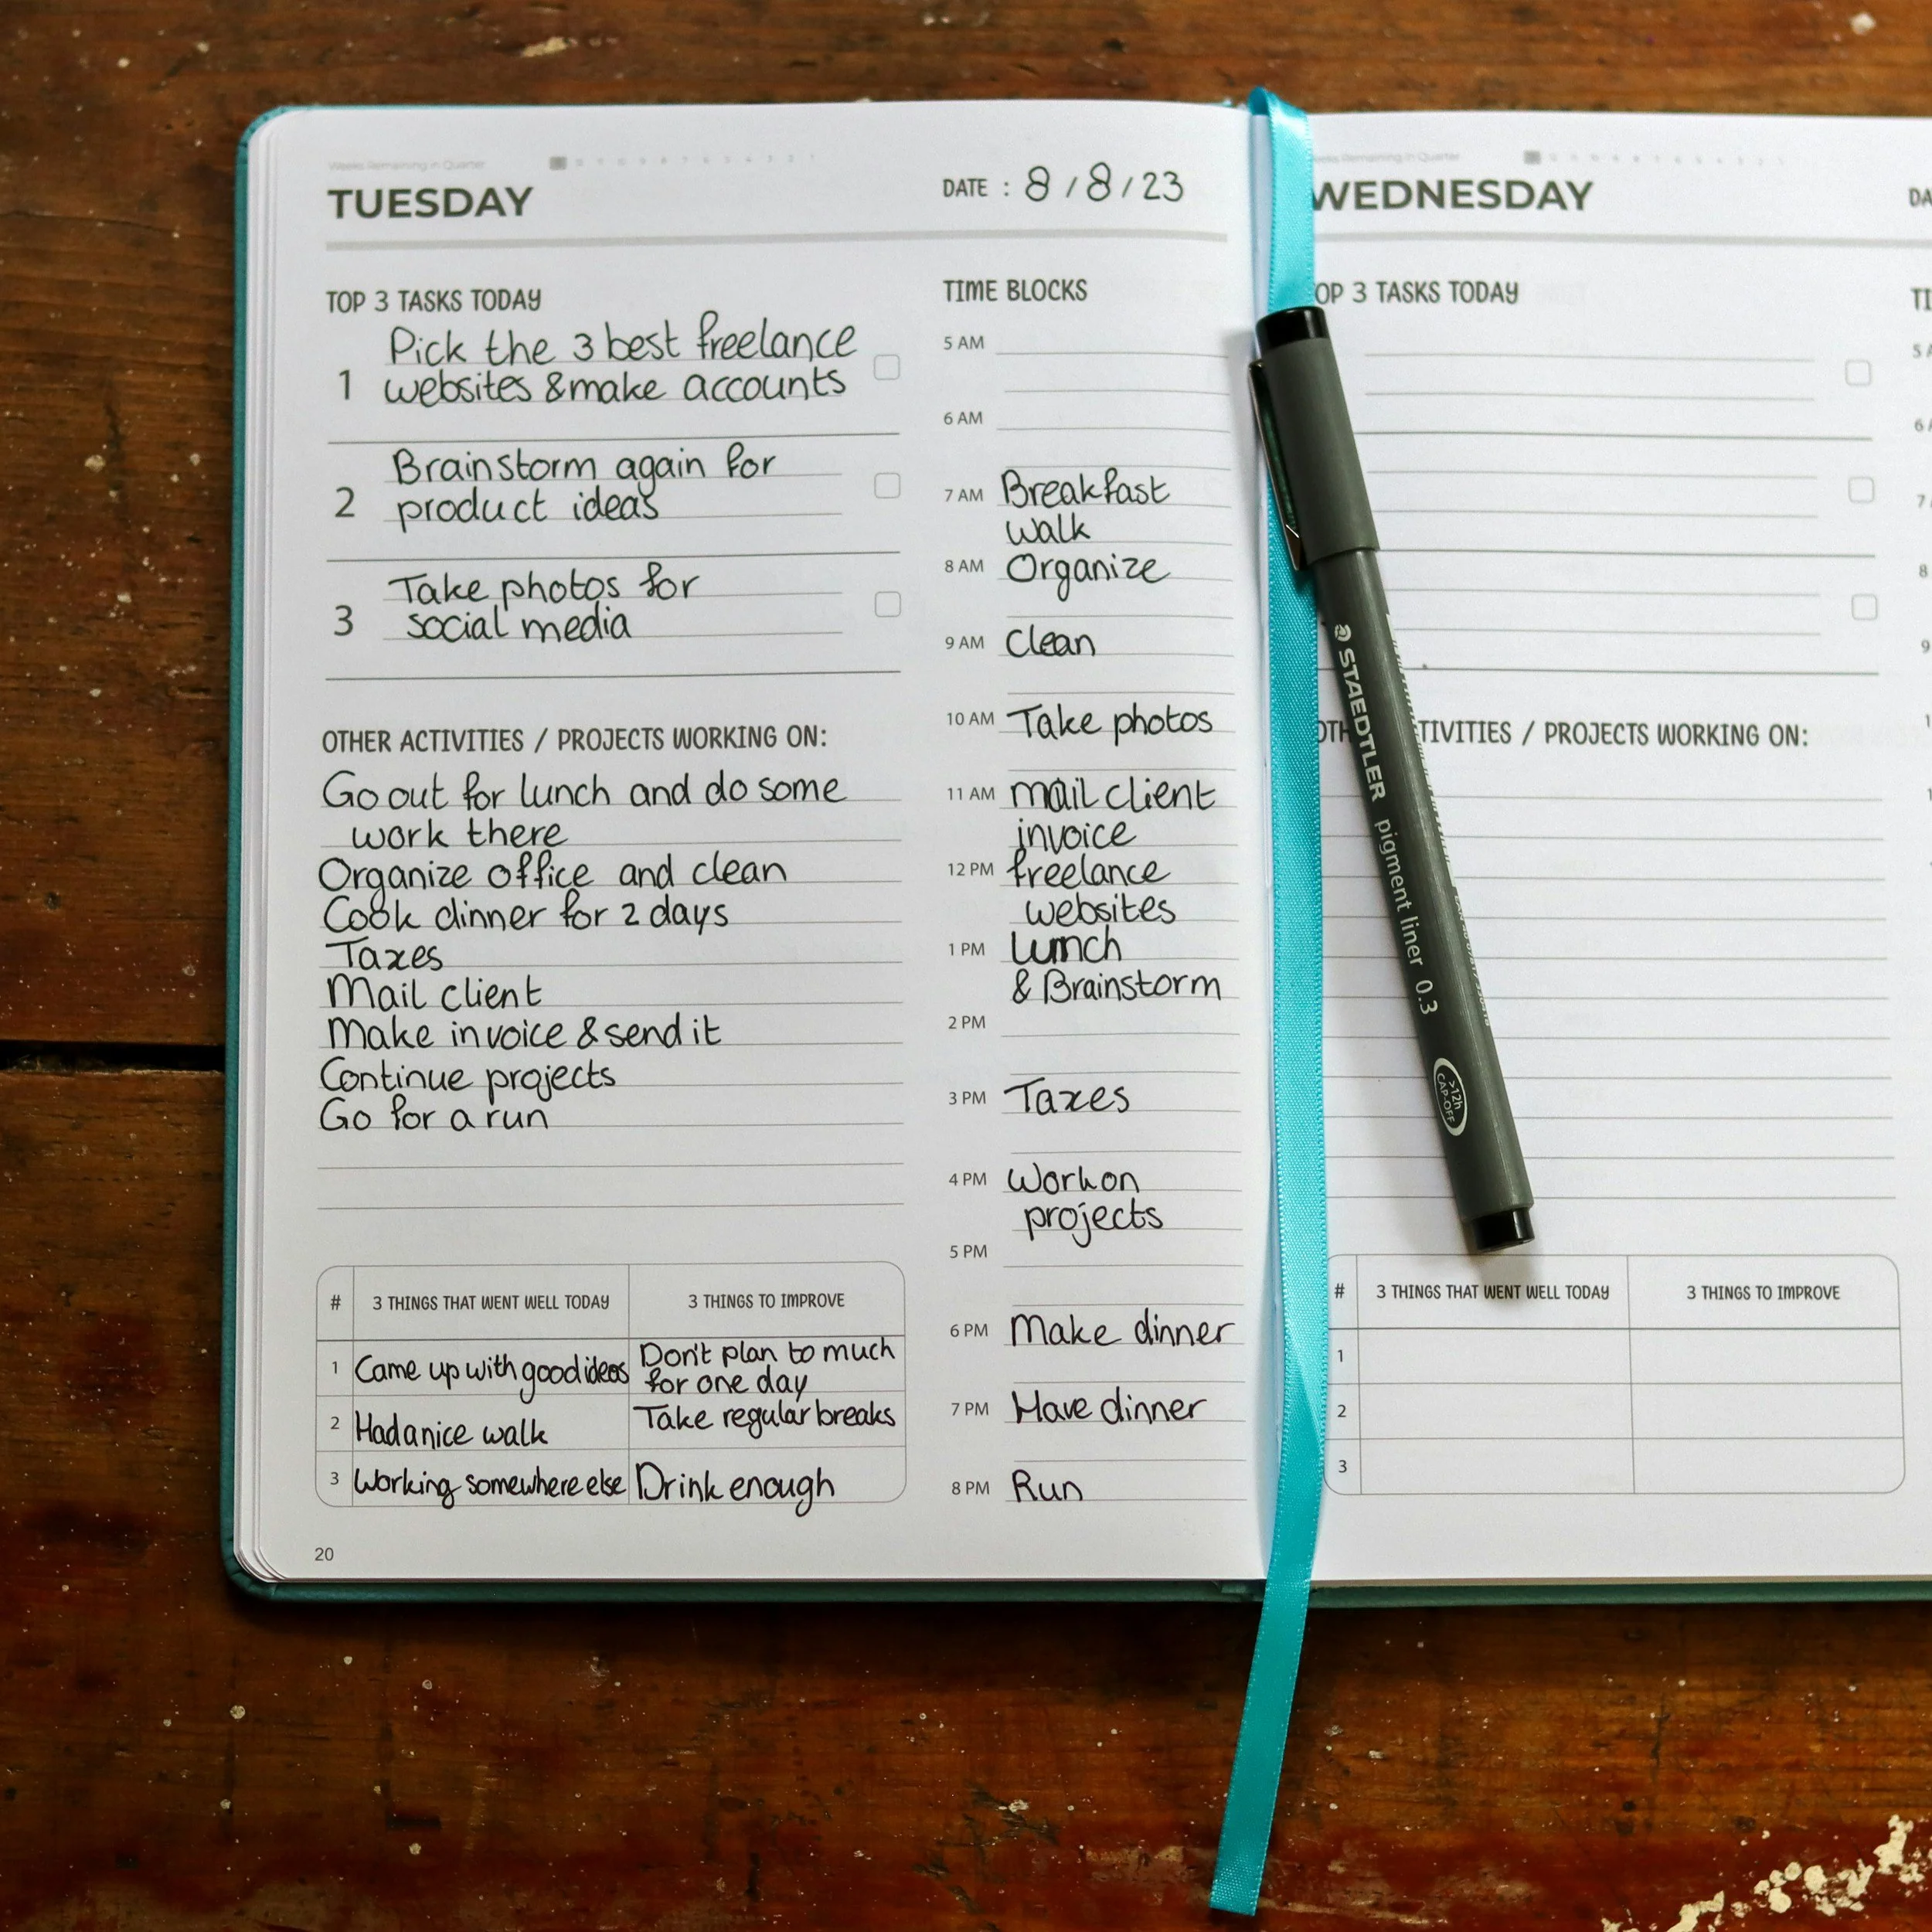 Weeks Remaining in Quarter
TUESDAY
DATE : 8 / 8 / 23
TOP 3 TASKS TODAY
1 Pick the 3 best freelance
websites & make accounts
2 Brainstorm again for
product ideas
3 Take photos for
social media
OTHER ACTIVITIES / PROJECTS WORKING ON:
Go out for lunch and do some
work there
Organize office and clean
Cook dinner for 2 days
Taxes
Mail client
Make invoice & send it
Continue projects
Go for a run
# 3 THINGS THAT WENT WELL TODAY 3 THINGS TO IMPROVE
1 Came up with good ideas Don't plan to much
for one day
2 Had a nice walk Take regular breaks
3 Working somewhere else Drink enough
20
TIME BLOCKS
5 AM
6 AM
7 AM Breakfast
walk
8 AM Organize
9 AM Clean
10 AM Take photos
11 AM mail client
invoice
12 PM freelance
websites
1 PM lunch
& Brainstorm
2 PM
3 PM Taxes
4 PM Work on
projects
5 PM
6 PM Make dinner
7 PM Have dinner
8 PM Run
STAEDTLER pigment liner 0.3
>12h
CAP-OFF
Remaining in Quarter
WEDNESDAY
DA
OP 3 TASKS TODAY
TI
5 A
6 A
7
8
9
1
1
OTH TIVITIES / PROJECTS WORKING ON:
# 3 THINGS THAT WENT WELL TODAY 3 THINGS TO IMPROVE
1
2
3